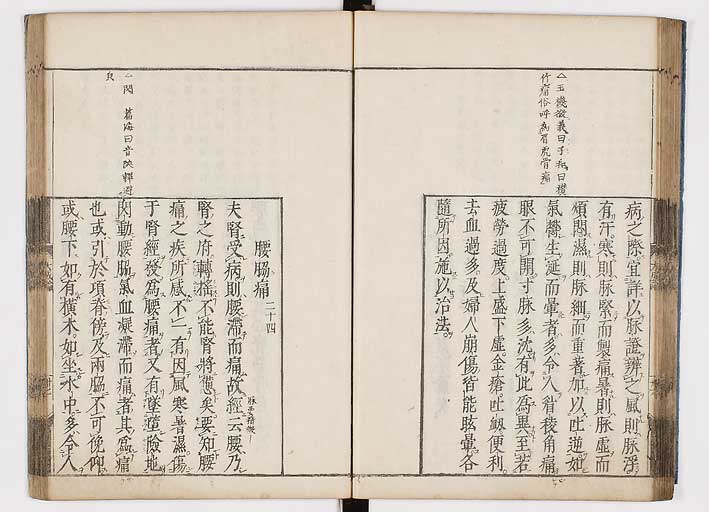 病之際宜詳以脉證辨之風則脉浮
有汗寒則脉緊而掣痛暑則脉虛而
煩悶濕則脉細而重著加以吐逆如
氣鬱生涎而暈者多令人眉稜角痛
眼不可開寸脉多沈有此爲異至若
疲勞過度上盛下虛金瘡吐衂便利
去血過多及婦人崩傷皆能眩暈各
隨所因施以治法
腰脇痛 二十四
夫腎受病則腰滯而痛故經云腰乃
腎之府轉搖不能腎將憊矣要知腰
痛之疾所感不一有因風寒暑濕傷
于腎經發爲腰痛者又有墜墮險地
閃動腰脇氣血凝滯而痛者其爲痛
也或引於項脊傍及兩脇不可俛仰
或腰下如有横木如坐水中多令人